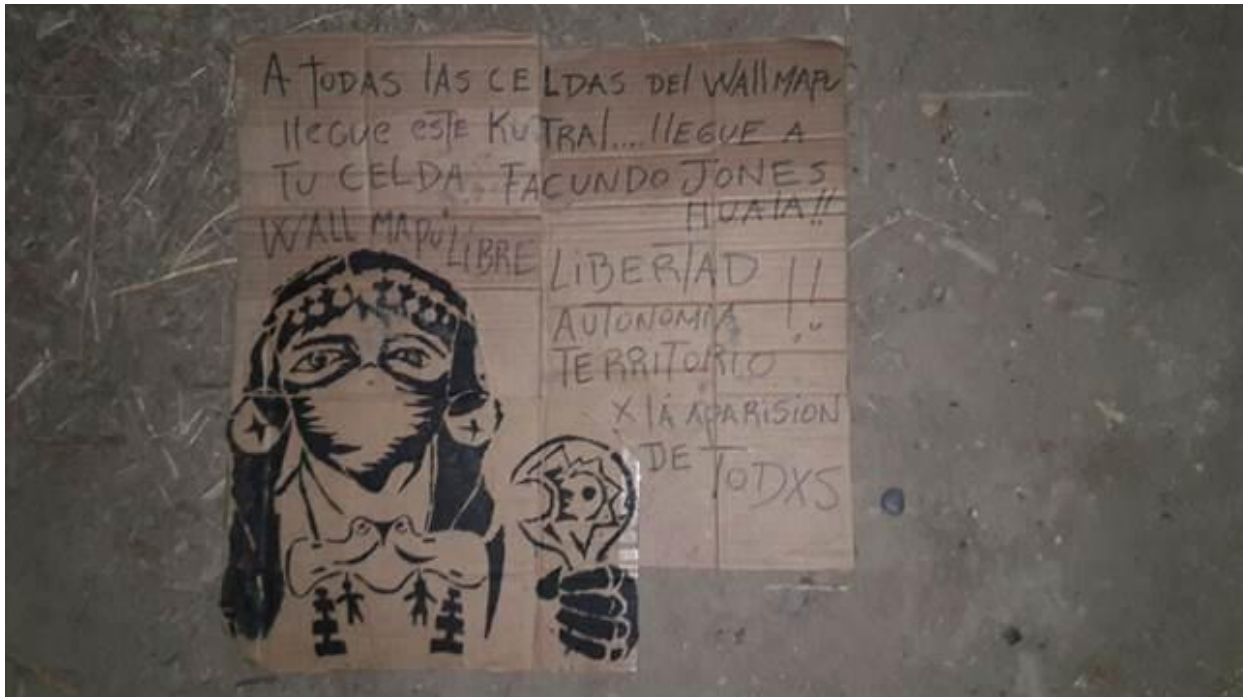 A TODAS lAS CELDAS DEl WAllMAPU
llEGUE ESTE KUTRAl.... llEGUE A
TU CELDA FACUNDO JONES
HUAlA!!
WALL MAPU LiBRE
LiBERTAD !!
AUTONOMIA
TERRITORIO
X lA APARISION
DE TODXS